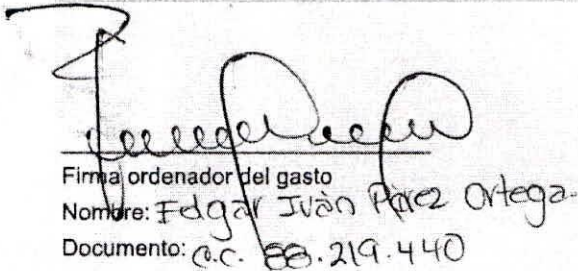 Firma ordenador del gasto
Nombre: Edgar Iván Pérez Ortega.
Documento: C.C. 88.219.440